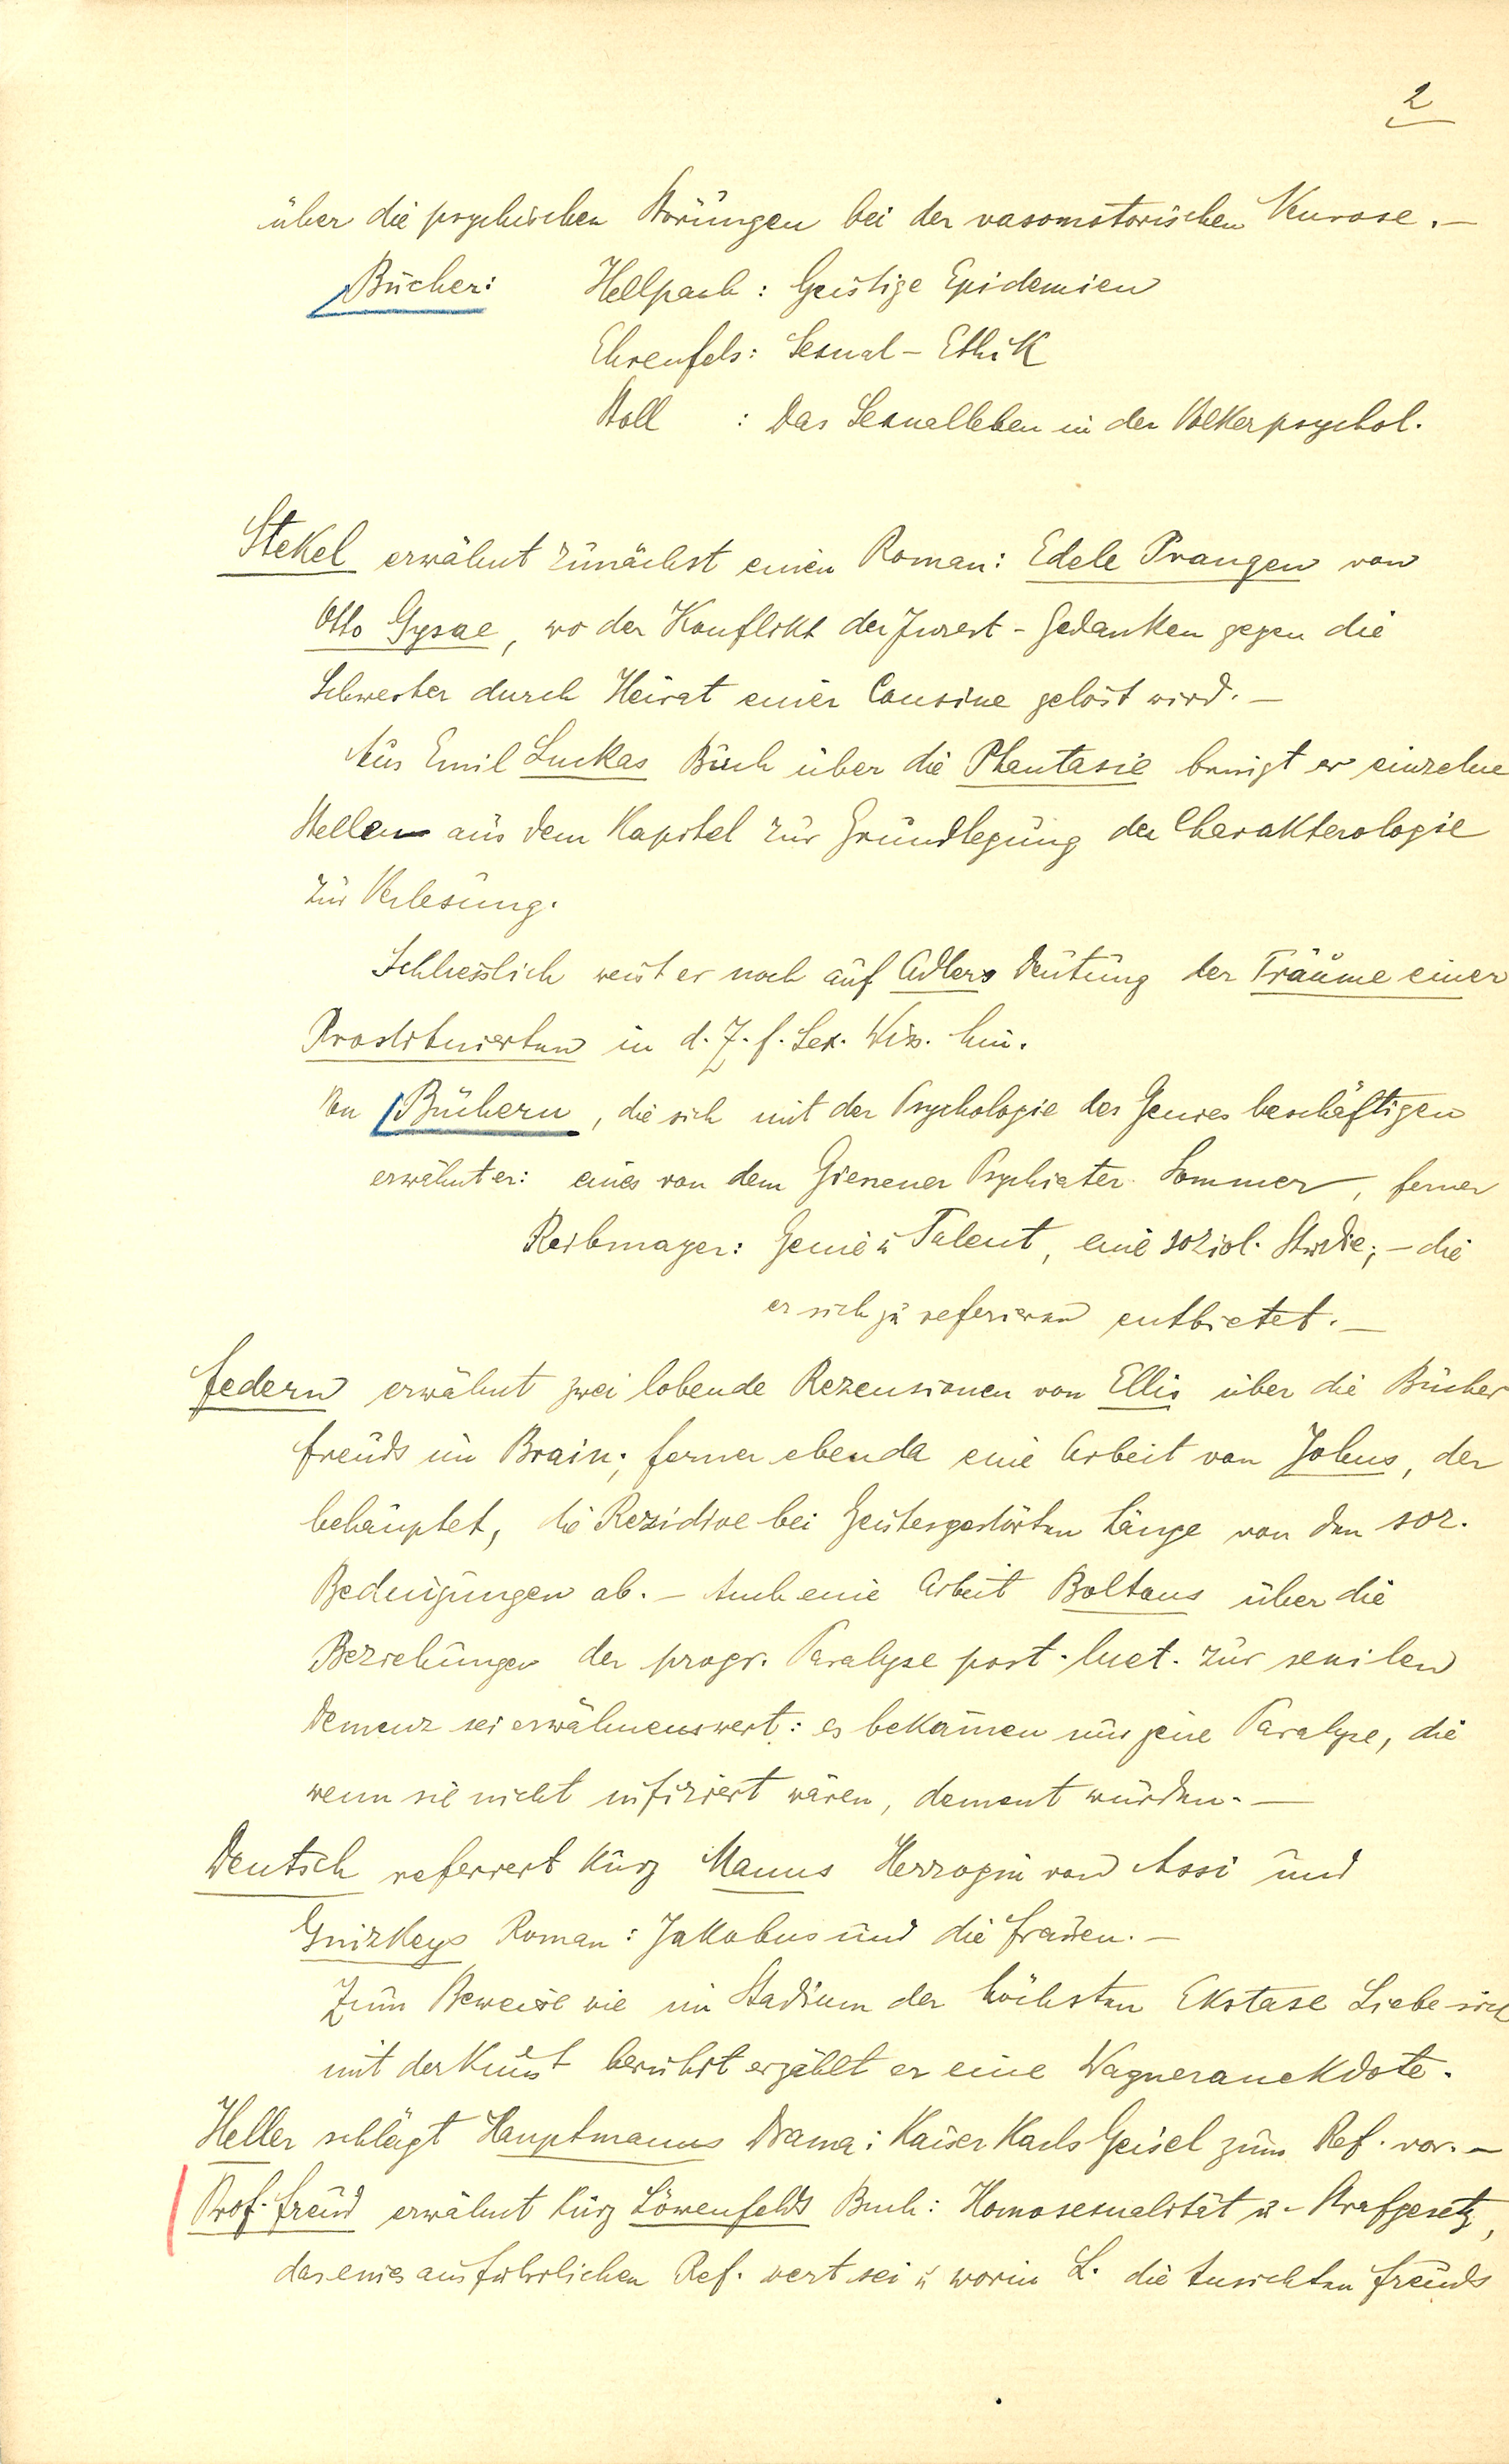 2
über die psychischen Störungen bei der vasomotorischen Neurose. –
Bücher: Hellpach: Geistige Epidemien
Ehrenfels: Sexual-Ethik
Stoll : Das Sexualleben in der Völkerpsychol.
Stekel erwähnt zunächst einen Roman: Edele Prangen von
Otto Gysae, wo der Konflikt der Inzest-Gedanken gegen die
Schwester durch Heirat einer Cousine gelöst wird. –
Aus Emil Luckas Buch über die Phantasie bringt er einzelne
Stellen aus dem Kapitel zur Grundlegung der Charakterologie
zur Verlesung.
Schliesslich weist er noch auf Adlers Deutung der Träume einer
Prostituierten in d. Z. f. Sex. Wiss. hin.
Von Büchern, die sich mit der Psychologie des Genies beschäftigen
erwähnt er: eines von dem Giessener Psychiater Sommer, ferner
Reibmayer: Genie u Talent, eine soziol. Studie; – die
er sich zu referieren entbietet. –
Federn erwähnt zwei lobende Rezensionen von Ellis über die Bücher
Freuds im Brain; ferner ebenda eine Arbeit von Johns, der
behauptet, die Rezidive bei Geistesgestörten hänge von den soz.
Bedingungen ab. – Auch eine Arbeit Boltons über die
Beziehungen der progr. Paralyse post-luet. zur senilen
Demenz sei erwähnenswert: es bekämen nur jene Paralyse, die
wenn sie nicht infiziert wären, dement würden. –
Deutsch referiert kurz Manns Herzogin von Assi und
Gnizkeys Roman: Jakobus und die Frauen. –
Zum Beweise wie im Stadium der höchsten Ekstase Liebe sich
mit der Kunst berührt erzählt er eine Wagneranekdote.
Heller schlägt Hauptmanns Drama: Kaiser Karls Geisel zum Ref. vor. –
Prof. Freud erwähnt kurz Löwenfelds Buch: Homosexualität u. Strafgesetz,
das eines ausführlichen Ref. wert sei u worin L. die Ansichten Freuds